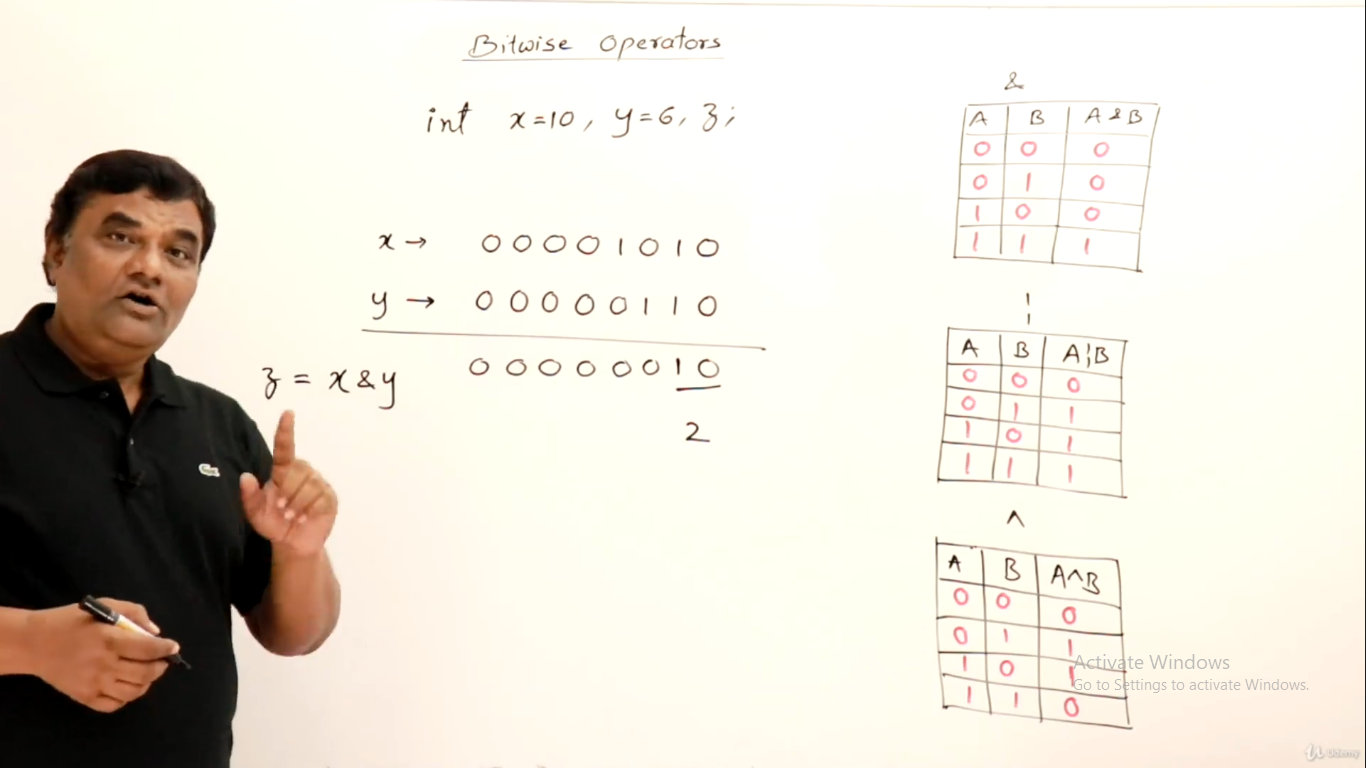 Bitwise Operators
int x=10, y=6, z;
x → 0 0 0 0 1 0 1 0
y → 0 0 0 0 0 1 1 0
z = x & y 0 0 0 0 0 0 1 0
2
&
A B A & B
0 0 0
0 1 0
1 0 0
1 1 1
¦
A B A¦B
0 0 0
0 1 1
1 0 1
1 1 1
^
A B A^B
0 0 0
0 1 1
1 0 1
1 1 0
Activate Windows
Go to Settings to activate Windows.
Udemy